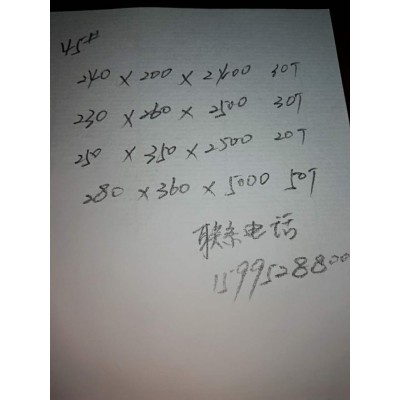 45#
240 × 200 × 2400 30T
230 × 260 × 2500 30T
250 × 350 × 2500 20T
280 × 360 × 5000 50T
联系电话
1599528800